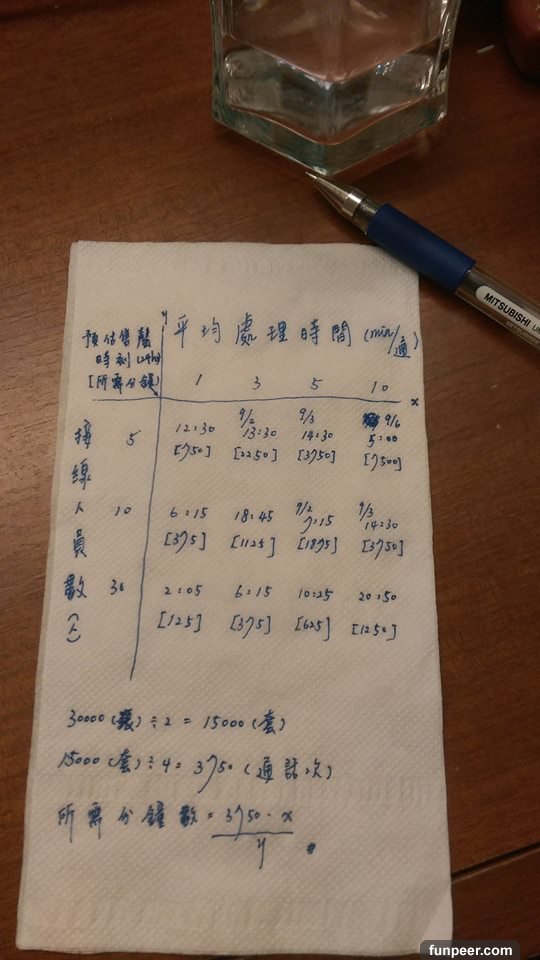 MITSUBISHI
y
平均處理時間 (min/通)
預估售罄
時刻(24hr)
[所需分鐘]
1 3 5 10
x
接線人員數(人)
9/2 9/3 9/6
5 12:30 13:30 14:30 5:00
[750] [2250] [3750] [7500]
9/2 9/3
10 6:15 18:45 7:15 14:30
[375] [1125] [1875] [3750]
30 2:05 6:15 10:25 20:50
[125] [375] [625] [1250]
30000(張)÷2=15000(套)
15000(套)÷4=3750(通話次)
所需分鐘數=3750·x
y
funpeer.com